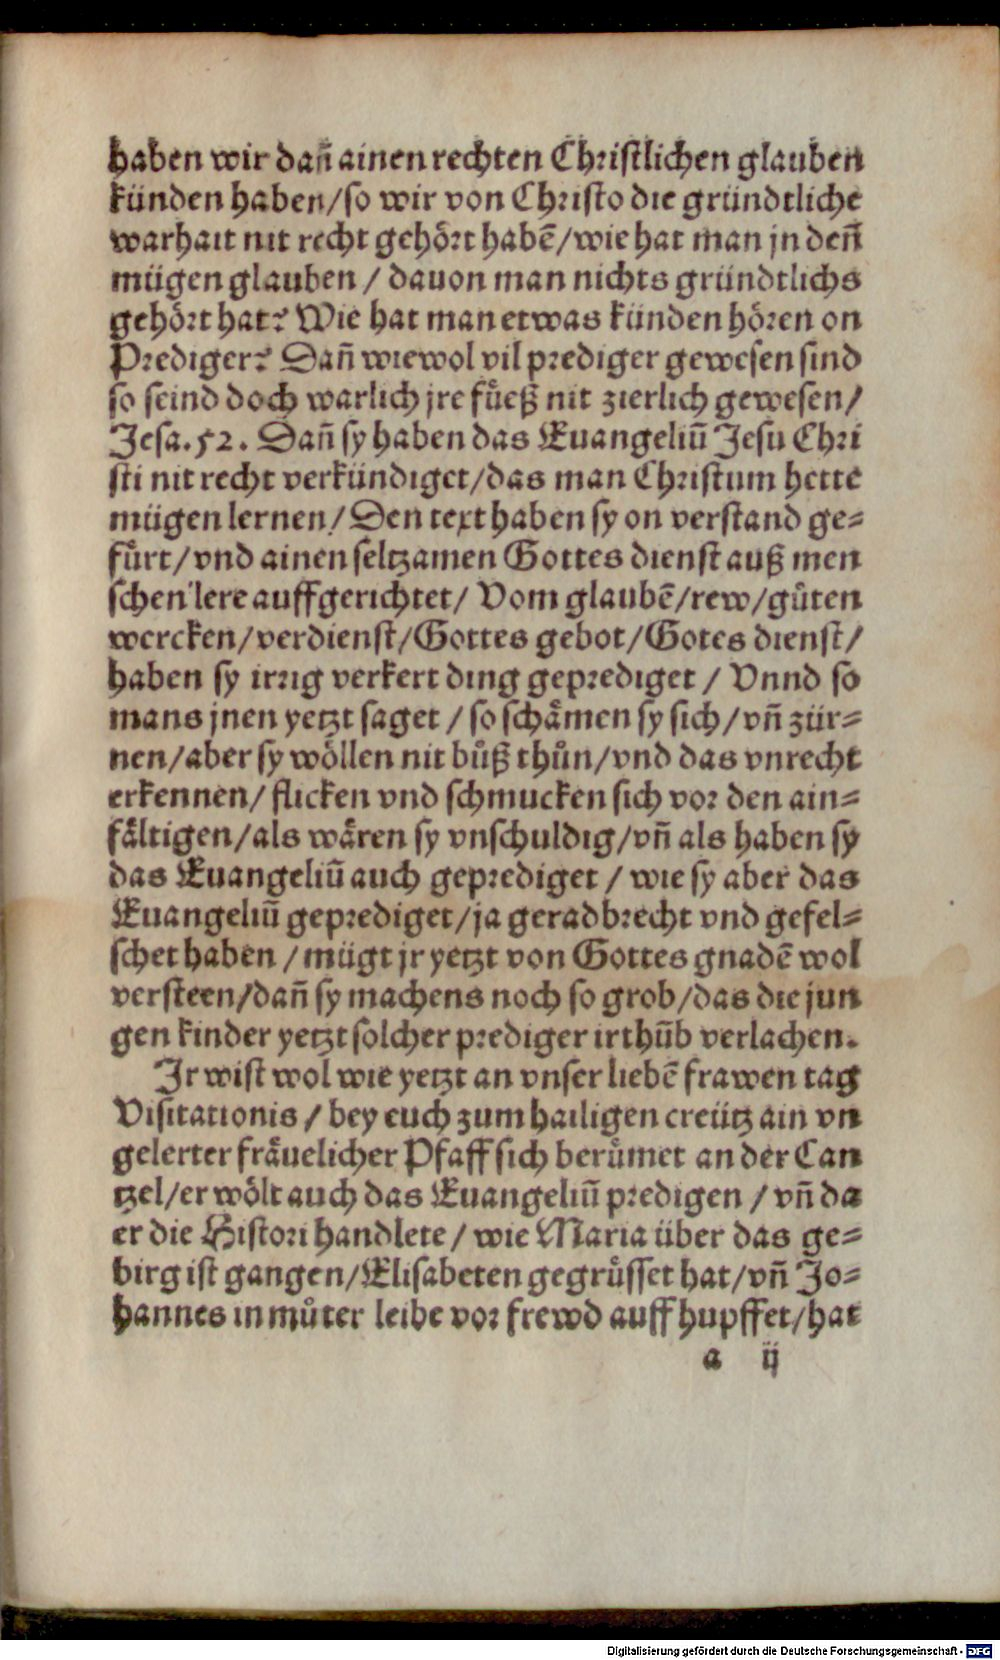 haben wir dañ ainen rechten Christlichen glauben
künden haben/so wir von Christo die gründtliche
warhait nit recht gehört habẽ/wie hat man jn deñ
mügen glauben / dauon man nichts gründtlichs
gehört hat? Wie hat man etwas künden hören on
Prediger? Dañ wiewol vil prediger gewesen sind
so seind doch warlich jre fuͤeß nit zierlich gewesen/
Jesa. 52. Dañ sy haben das Euangeliũ Jesu Chri
sti nit recht verkündiget/das man Christum hette
mügen lernen/ Den text haben sy on verstand ge-
fuͤrt/vnd ainen seltzamen Gottes dienst auß men
schen lere auffgerichtet/ Vom glaubẽ/rew/guͤten
wercken/verdienst/Gottes gebot/Gotes dienst/
haben sy irrig verkert ding geprediget / Vnnd so
mans jnen yetzt saget / so schaͤmen sy sich/vñ zür-
nen/aber sy woͤllen nit buͦß thuͦn/vnd das vnrecht
erkennen/ flicken vnd schmucken sich vor den ain-
faͤltigen/als waͤren sy vnschuldig/vñ als haben sy
das Euangeliũ auch geprediget / wie sy aber das
Euangeliũ geprediget/ja geradbrecht vnd gefel-
schet haben / mügt jr yetzt von Gottes gnadẽ wol
versteen/dañ sy machens noch so grob/das die jun
gen kinder yetzt solcher prediger irthũb verlachen.
Jr wist wol wie yetzt an vnser liebẽ frawen tag
Visitationis / bey euch zum hailigen creütz ain vn
gelerter fraͤuelicher Pfaff sich beruͤmet an der Can
tzel/er woͤlt auch das Euangeliũ predigen / vñ da
er die Histori handlete / wie Maria über das ge-
birg ist gangen/Elisabeten gegruͤsset hat/vñ Jo-
hannes in muͦter leibe vor frewd auff hupffet/hat
a ij
Digitalisierung gefördert durch die Deutsche Forschungsgemeinschaft - DFG